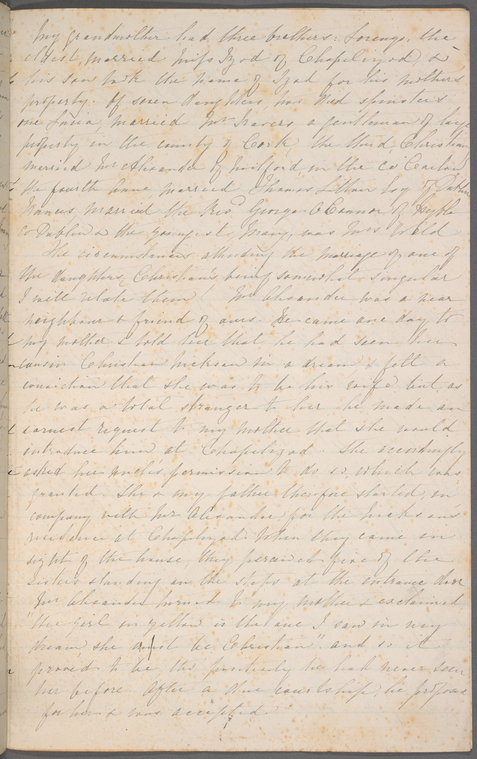 My grandmother had three brothers. Lorenzo, the
eldest, married Miss Izod of Chapelizod, &
his son took the name of Izod for his mothers
property. Of seven daughters, two died spinsters
one, married Mr Travers a gentleman of large
property in the county of Cork the third Christian
married Mr Alexander of Milford, in the co Carlow
the fourth Anne married Thomas Esq of Dublin
Frances, married the Revd George O'Connor of
Co Dublin & the youngest, Mary, was Mrs
The circumstances attending the marriage of one of
the daughters, Christian's being somewhat singular
I will relate them. Mr Alexander was a near
neighbour & friend of ours. He came one day to
my mother & told her that he had seen her
cousin Christian in a dream & felt a
conviction that she was to be his wife but, as
he was a total stranger to her he made an
earnest request to my mother that she would
introduce him at Chapelizod. She accordingly
asked her uncles permission to do so, which was
granted. She & my father therefore started, in
company with Mr Alexander, for the
residence at Chapelizod. When they came in
sight of the house, they perceived five of the
sisters standing on the steps at the entrance door
Mr Alexander turned to my mother & exclaimed
the girl in yellow is the one I saw in my
dream, she must be Christian" and so it
proved to be, tho positively he had never seen
her before. After a due courtship, he proposed
for her & was accepted.